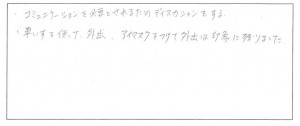 ・コミュニケーションを必要とされるためディスカッションをする。
・車いすを使って、外出、アイマスクをつけて外出は印象に残りました。